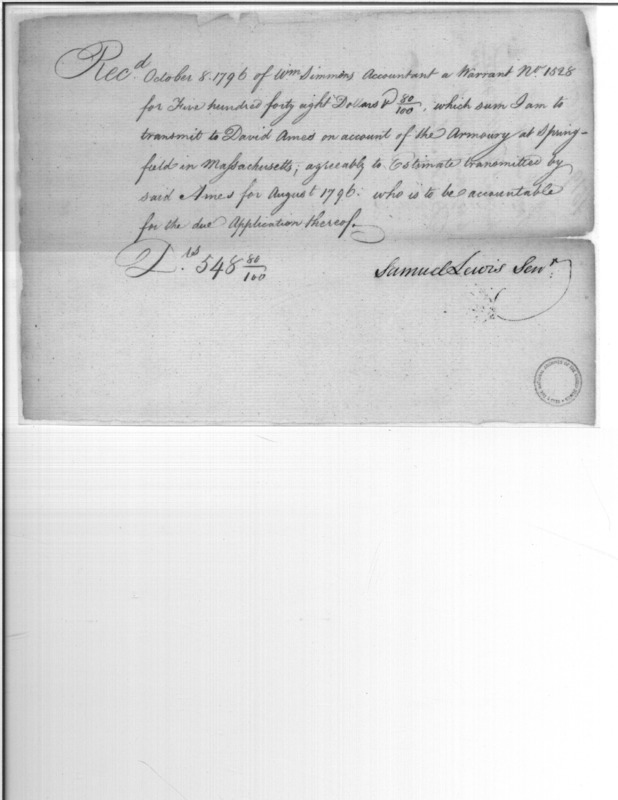 Recd. October 8. 1796 of Wm Simmons Accountant a Warrant No. 1528
for Five hundred forty eight Dollars & 80/100, which sum I am to
transmit to David Ames on account of the Armoury at Spring-
field in Massachusetts; agreeably to Estimate transmitted by
said Ames for August 1796: who is to be accountable
for the due Application thereof.
Drs. 548 80/100
Samuel Lewis Senr.